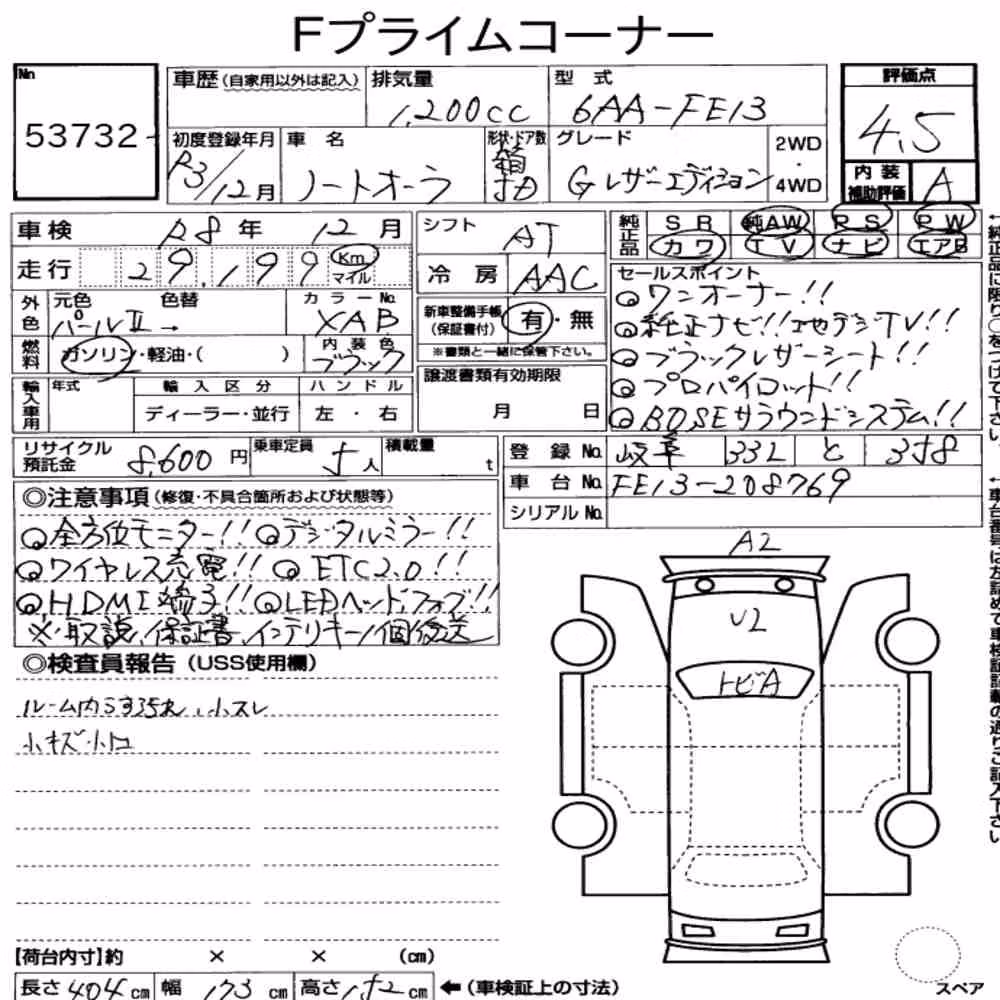 Fプライムコーナー
No
53732
車歴(自家用以外は記入)
排気量
1,200cc
型式
6AA-FE13
評価点
4.5
初度登録年月
R3/12月
車名
ノートオーラ
形状・ドア数
箱
5D
グレード
G レザーエディション
2WD
・
4WD
内装
補助評価
A
車検
R8年 12月
シフト
AT
純正品
SR 純AW PS PW
カワ TV ナビ エアB
走行
29,199
Km
マイル
冷房
AAC
セールスポイント
◎ワンオーナー!!
◎純正ナビ!!地デジTV!!
◎ブラックレザーシート!!
◎プロパイロット!!
◎BOSEサラウンドシステム!!
外色
元色
パールⅡ→
色替
カラーNo.
XAB
新車整備手帳
(保証書付)
有・無
※書類と一緒に保管下さい。
燃料
ガソリン・軽油・( )
内装色
ブラック
輸入車用
年式
輸入区分
ディーラー・並行
ハンドル
左・右
譲渡書類有効期限
月 日
リサイクル
預託金
8,600円
乗車定員
5人
積載量
t
登録No.
岐阜 332 と 358
車台No.
FE13-208769
シリアルNo.
◎注意事項(修復・不具合箇所および状態等)
◎全方位モニター!!◎デジタルミラー!!
◎ワイヤレス充電!!◎ETC2.0!!
◎HDMI端子!!◎LEDヘッド、フォグ!!
※取説、保証書、インテリキー1個後送
◎検査員報告(USS使用欄)
ルーム内
小スレ
小キズ・小凹
A2
U2
トビA
【荷台内寸】約 × × (cm)
長さ 404cm
幅 173cm
高さ 152cm
←(車検証上の寸法)
スペア
←純正品に限り○をつけて下さい。
←車台番号は左詰めで車検証記載の通りご記入下さい